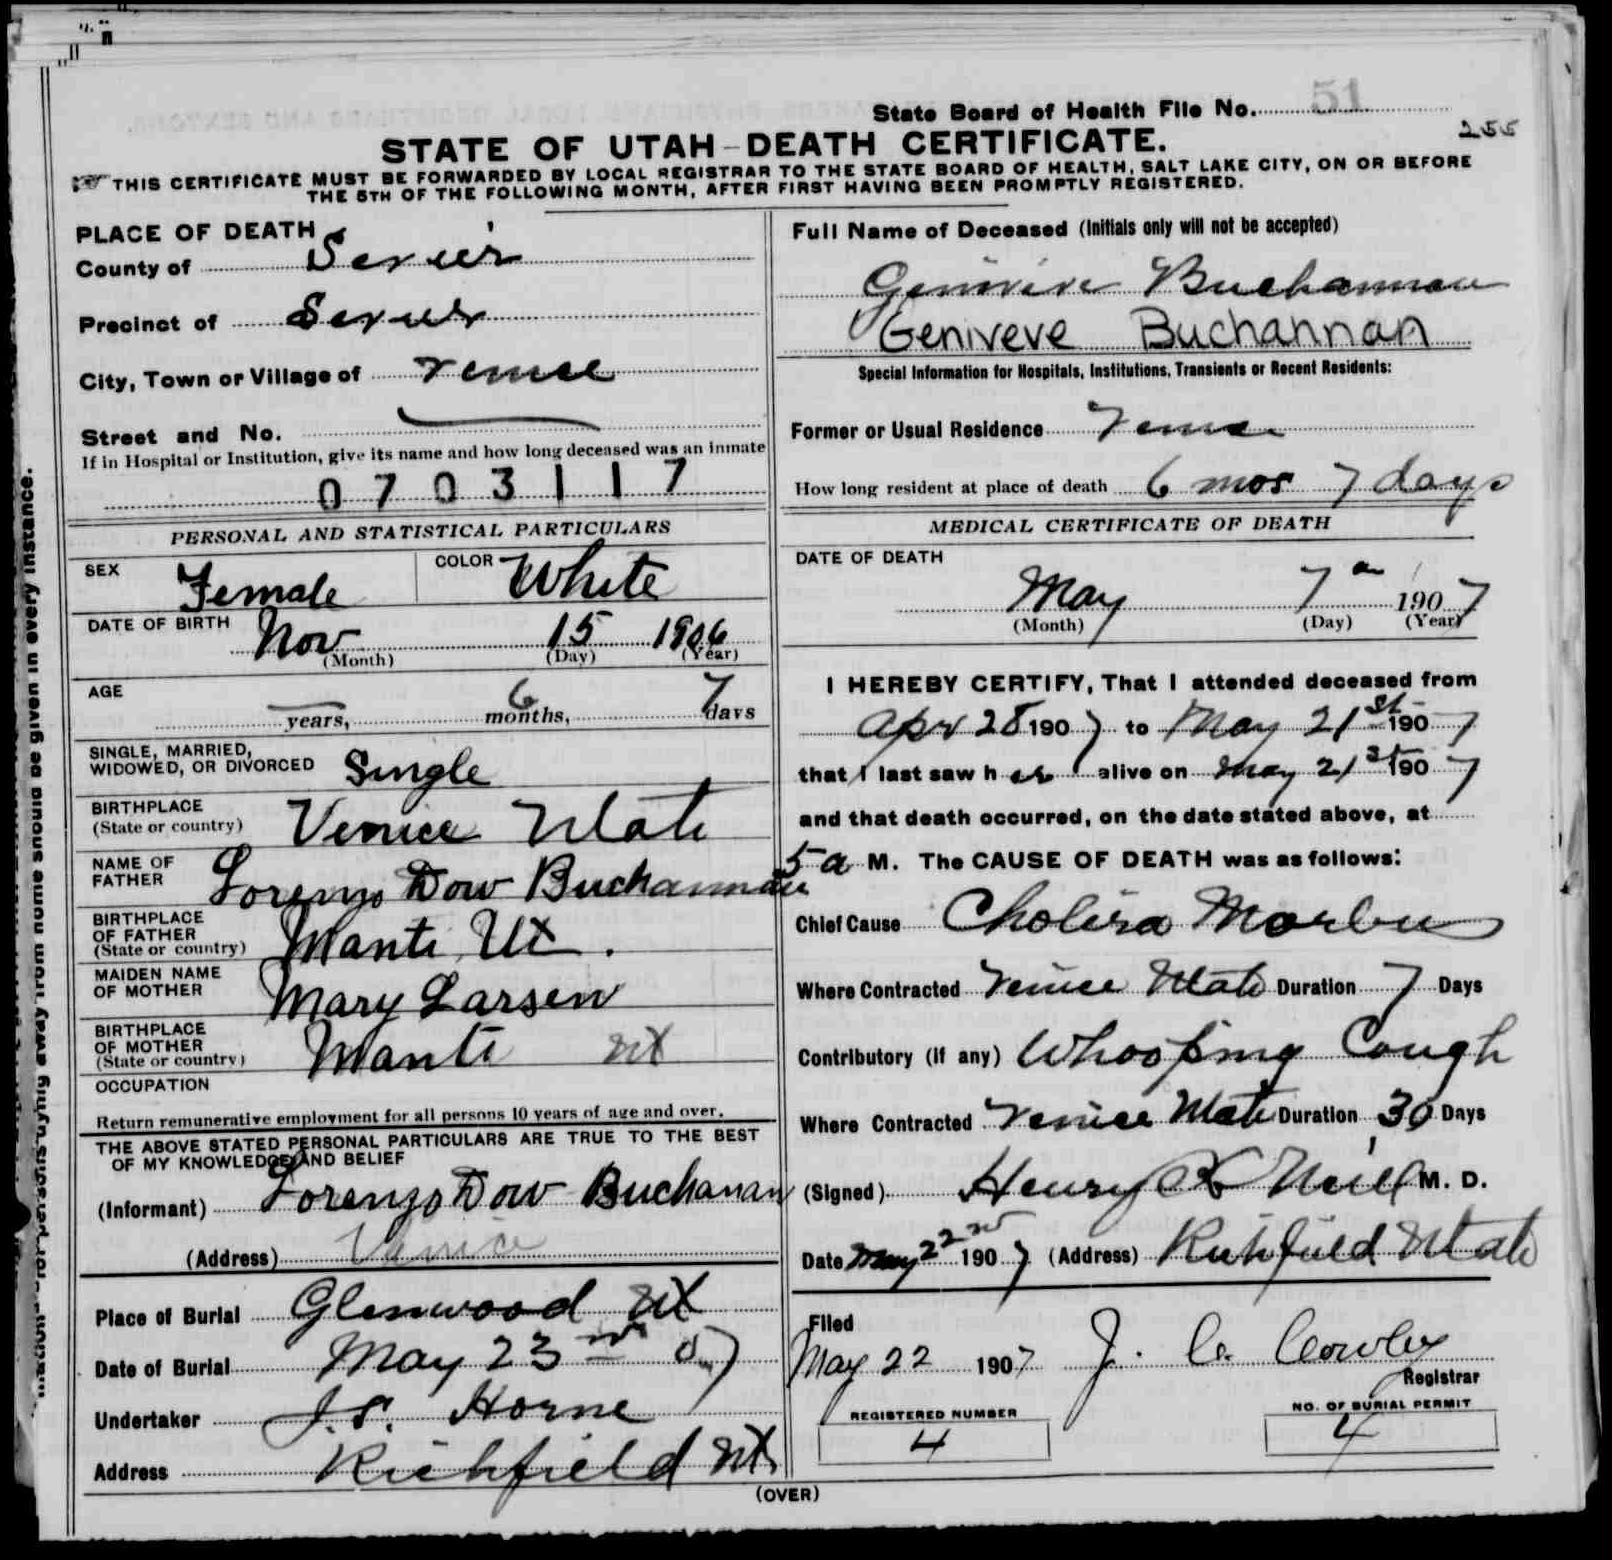 State Board of Health File No. 51
255
STATE OF UTAH-DEATH CERTIFICATE.
THIS CERTIFICATE MUST BE FORWARDED BY LOCAL REGISTRAR TO THE STATE BOARD OF HEALTH, SALT LAKE CITY, ON OR BEFORE
THE 5TH OF THE FOLLOWING MONTH, AFTER FIRST HAVING BEEN PROMPTLY REGISTERED.
PLACE OF DEATH
County of Sevier
Precinct of Sevier
City, Town or Village of Venice
Street and No.
If in Hospital or Institution, give its name and how long deceased was an inmate
0703117
PERSONAL AND STATISTICAL PARTICULARS
SEX Female COLOR White
DATE OF BIRTH Nov 15 1906
(Month) (Day) (Year)
AGE
years, 6 months, 7 days
SINGLE, MARRIED,
WIDOWED, OR DIVORCED Single
BIRTHPLACE
(State or country) Venice Utah
NAME OF
FATHER Lorenzo Dow Buchannan
BIRTHPLACE
OF FATHER
(State or country) Manti Ut.
MAIDEN NAME
OF MOTHER Mary Larsen
BIRTHPLACE
OF MOTHER
(State or country) Manti Ut
OCCUPATION
Return remunerative employment for all persons 10 years of age and over.
THE ABOVE STATED PERSONAL PARTICULARS ARE TRUE TO THE BEST
OF MY KNOWLEDGE AND BELIEF
(Informant) Lorenzo Dow Buchanan
(Address) Venice
Place of Burial Glenwood Ut
Date of Burial May 23 07
Undertaker J.S. Horne
Address Richfield Ut
Full Name of Deceased (Initials only will not be accepted)
Genivive Buchannan
Geniveve Buchannan
Special Information for Hospitals, Institutions, Transients or Recent Residents:
Former or Usual Residence Venice
How long resident at place of death 6 mos 7 days
MEDICAL CERTIFICATE OF DEATH
DATE OF DEATH
May 7 1907
(Month) (Day) (Year)
I HEREBY CERTIFY, That I attended deceased from
Apr 28 1907 to May 21st 1907
that I last saw her alive on May 21st 1907
and that death occurred, on the date stated above, at
5 a M. The CAUSE OF DEATH was as follows:
Chief Cause Cholira Morbus
Where Contracted Venice Utah Duration 7 Days
Contributory (if any) Whooping Cough
Where Contracted Venice Utah Duration 30 Days
(Signed) Henry K Neill M. D.
Date May 22nd 1907 (Address) Richfield Utah
Filed
May 22 1907 J. C. Cowley
Registrar
REGISTERED NUMBER
4
NO. OF BURIAL PERMIT
4
(OVER)